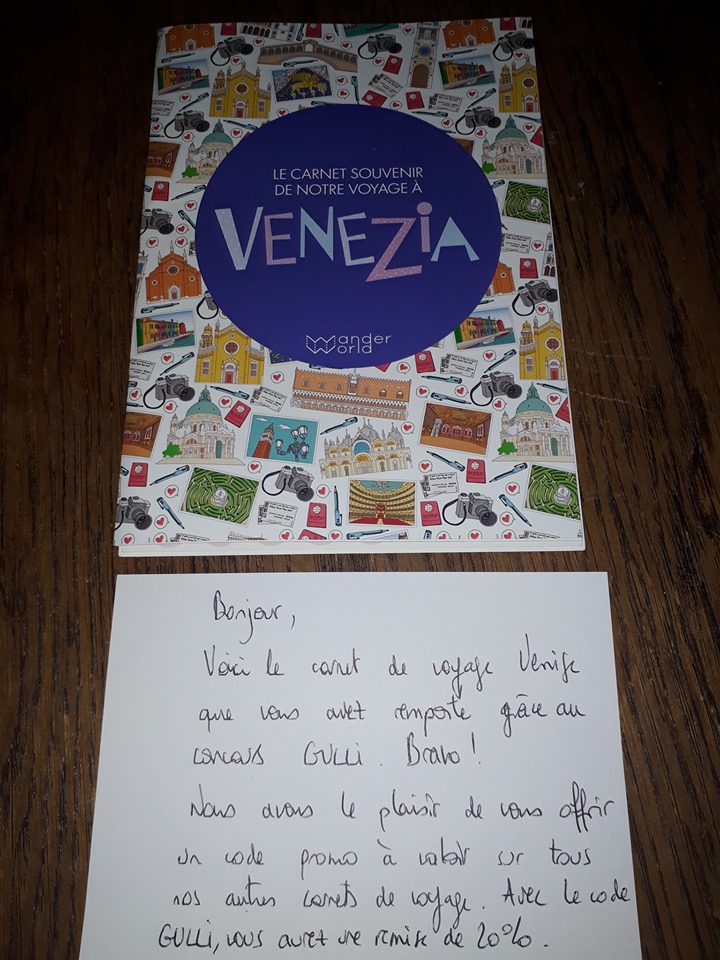 LE CARNET SOUVENIR
DE NOTRE VOYAGE À
VENEZIA
Wander
World
Bonjour,
Voici le carnet de voyage Venise
que vous avez remporté grâce au
concours GULLI. Bravo !
Nous avons le plaisir de vous offrir
un code promo à valoir sur tous
nos autres carnets de voyage. Avec le code
GULLI, vous aurez une remise de 20%.